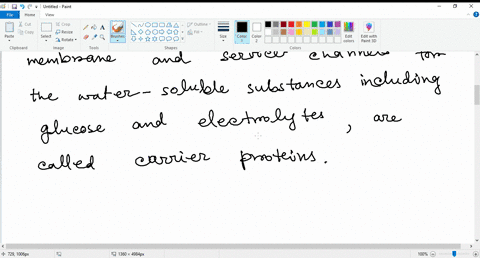 Untitled - Paint
File Home View
Cut
Copy
Paste
Crop
Resize
Rotate
Select
Brushes
Outline
Fill
Size
Color 1
Color 2
Edit colors
Edit with Paint 3D
Clipboard Image Tools Shapes Colors
membrane and servicer channels for
the water-soluble substances including
glucose and electrolytes, are
called carrier proteins.
728, 1006px
1360 × 4984px
100%